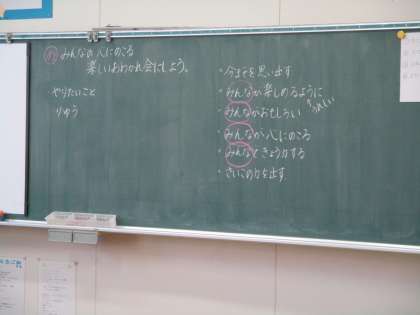 みんなの心にのこる
楽しいおわかれ会にしよう。
やりたいこと
りゆう
・今までを思い出す
・みんなが楽しめるように
・みんながおもしろい
うれしい
・みんなが心にのこる
・みんなときょうかする
・さいごの力を出す